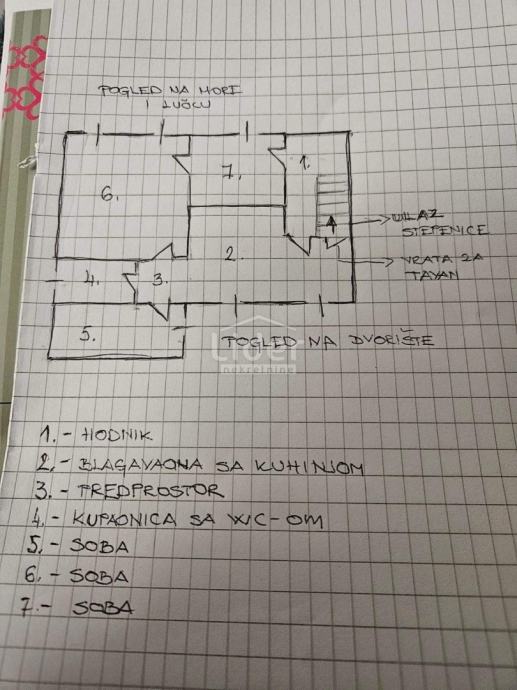 POGLED NA MORE
I LUČCU
6.
7.
1.
2.
4.
3.
5.
ULAZ
STEPENICE
VRATA ZA
TAVAN
POGLED NA DVORIŠTE
Lider
nekretnine
1. - HODNIK
2. - BLAGAVAONA SA KUHINJOM
3. - PREDPROSTOR
4. - KUPAONICA SA WC-OM
5. - SOBA
6. - SOBA
7. - SOBA